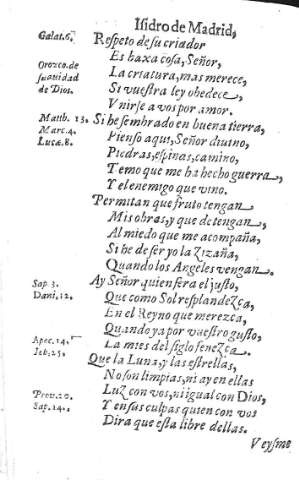 Isidro de Madrid,
Galat.6.
Respeto de su criador
Es baxa cosa, Señor,
Orozco.de
suavidad
de Dios.
La criatura, mas merece,
Si vuestra ley obedece,
Vnirse a vos por amor.
Matth. 13.
Marc.4.
Lucæ.8.
Si he sembrado en buena tierra,
Pienso aqui, Señor diuino,
Piedras, espinas, camino,
Temo que me ha hecho guerra,
Y el enemigo que vino.
Permitan que fruto tengan
Mis obras, y que detengan,
Al miedo que me acompaña,
Si he de ser yo la Zizaña,
Quando los Angeles vengan.
Sap. 3.
Dani,12.
Ay Señor quien sera el justo,
Que como Sol resplandezca,
En el Reyno que merezca,
Quando ya por vuestro gusto,
Apec.14.
Iob.25.
La mies del siglo fenezca.
Que la Luna, y las estrellas,
No son limpias, ni ay en ellas
Prov.20.
Sap.14.
Luz con vos, ni igual con Dios,
Y en sus culpas quien con vos
Dira que esta libre dellas.
Veysme